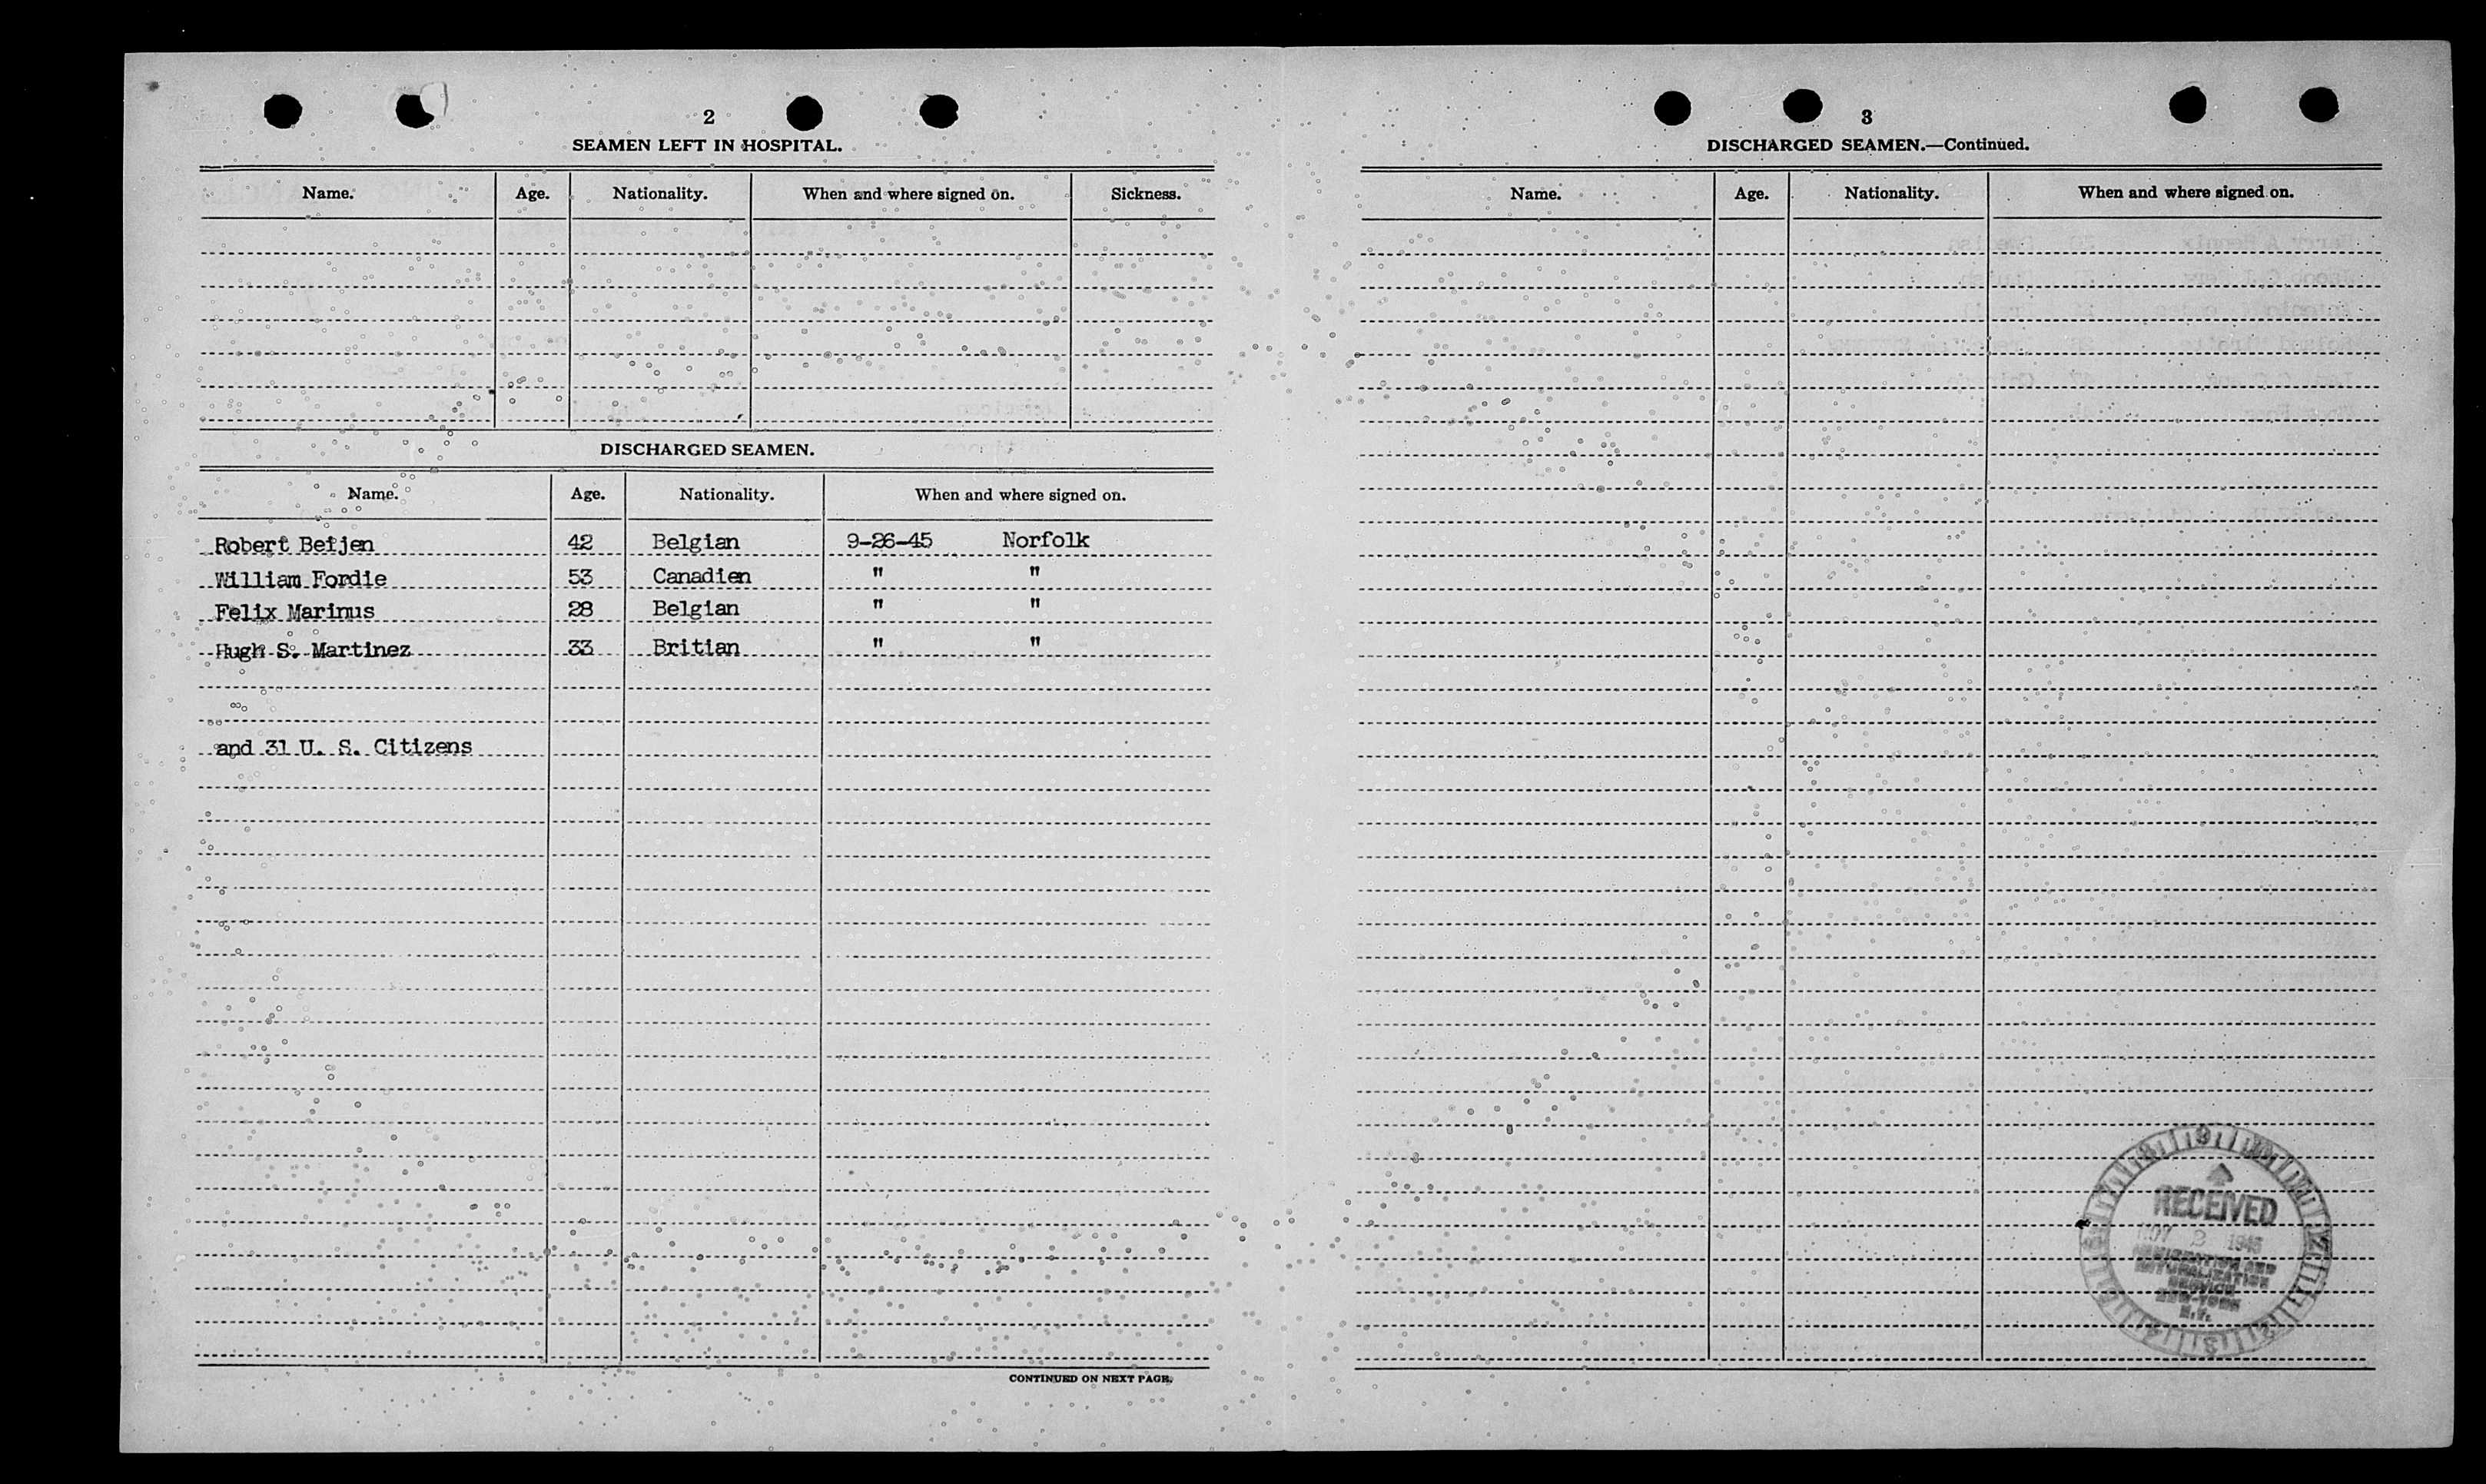 2
SEAMEN LEFT IN HOSPITAL.
Name. Age. Nationality. When and where signed on. Sickness.
DISCHARGED SEAMEN.
Name. Age. Nationality. When and where signed on.
Robert Beijen 42 Belgian 9-26-45 Norfolk
William Fordie 53 Canadien " "
Felix Marinus 28 Belgian " "
Hugh S. Martinez 33 Britian " "
and 31 U. S. Citizens
CONTINUED ON NEXT PAGE.
3
DISCHARGED SEAMEN.—Continued.
Name. Age. Nationality. When and where signed on.
RECEIVED
NOV 2 1945
IMMIGRATION AND
NATURALIZATION
SERVICE
NEW-YORK
N.Y.